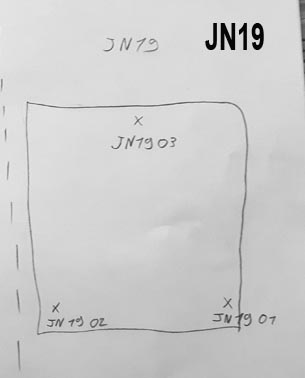 JN19
JN19
x
JN1903
x
JN19 02
x
JN19 01